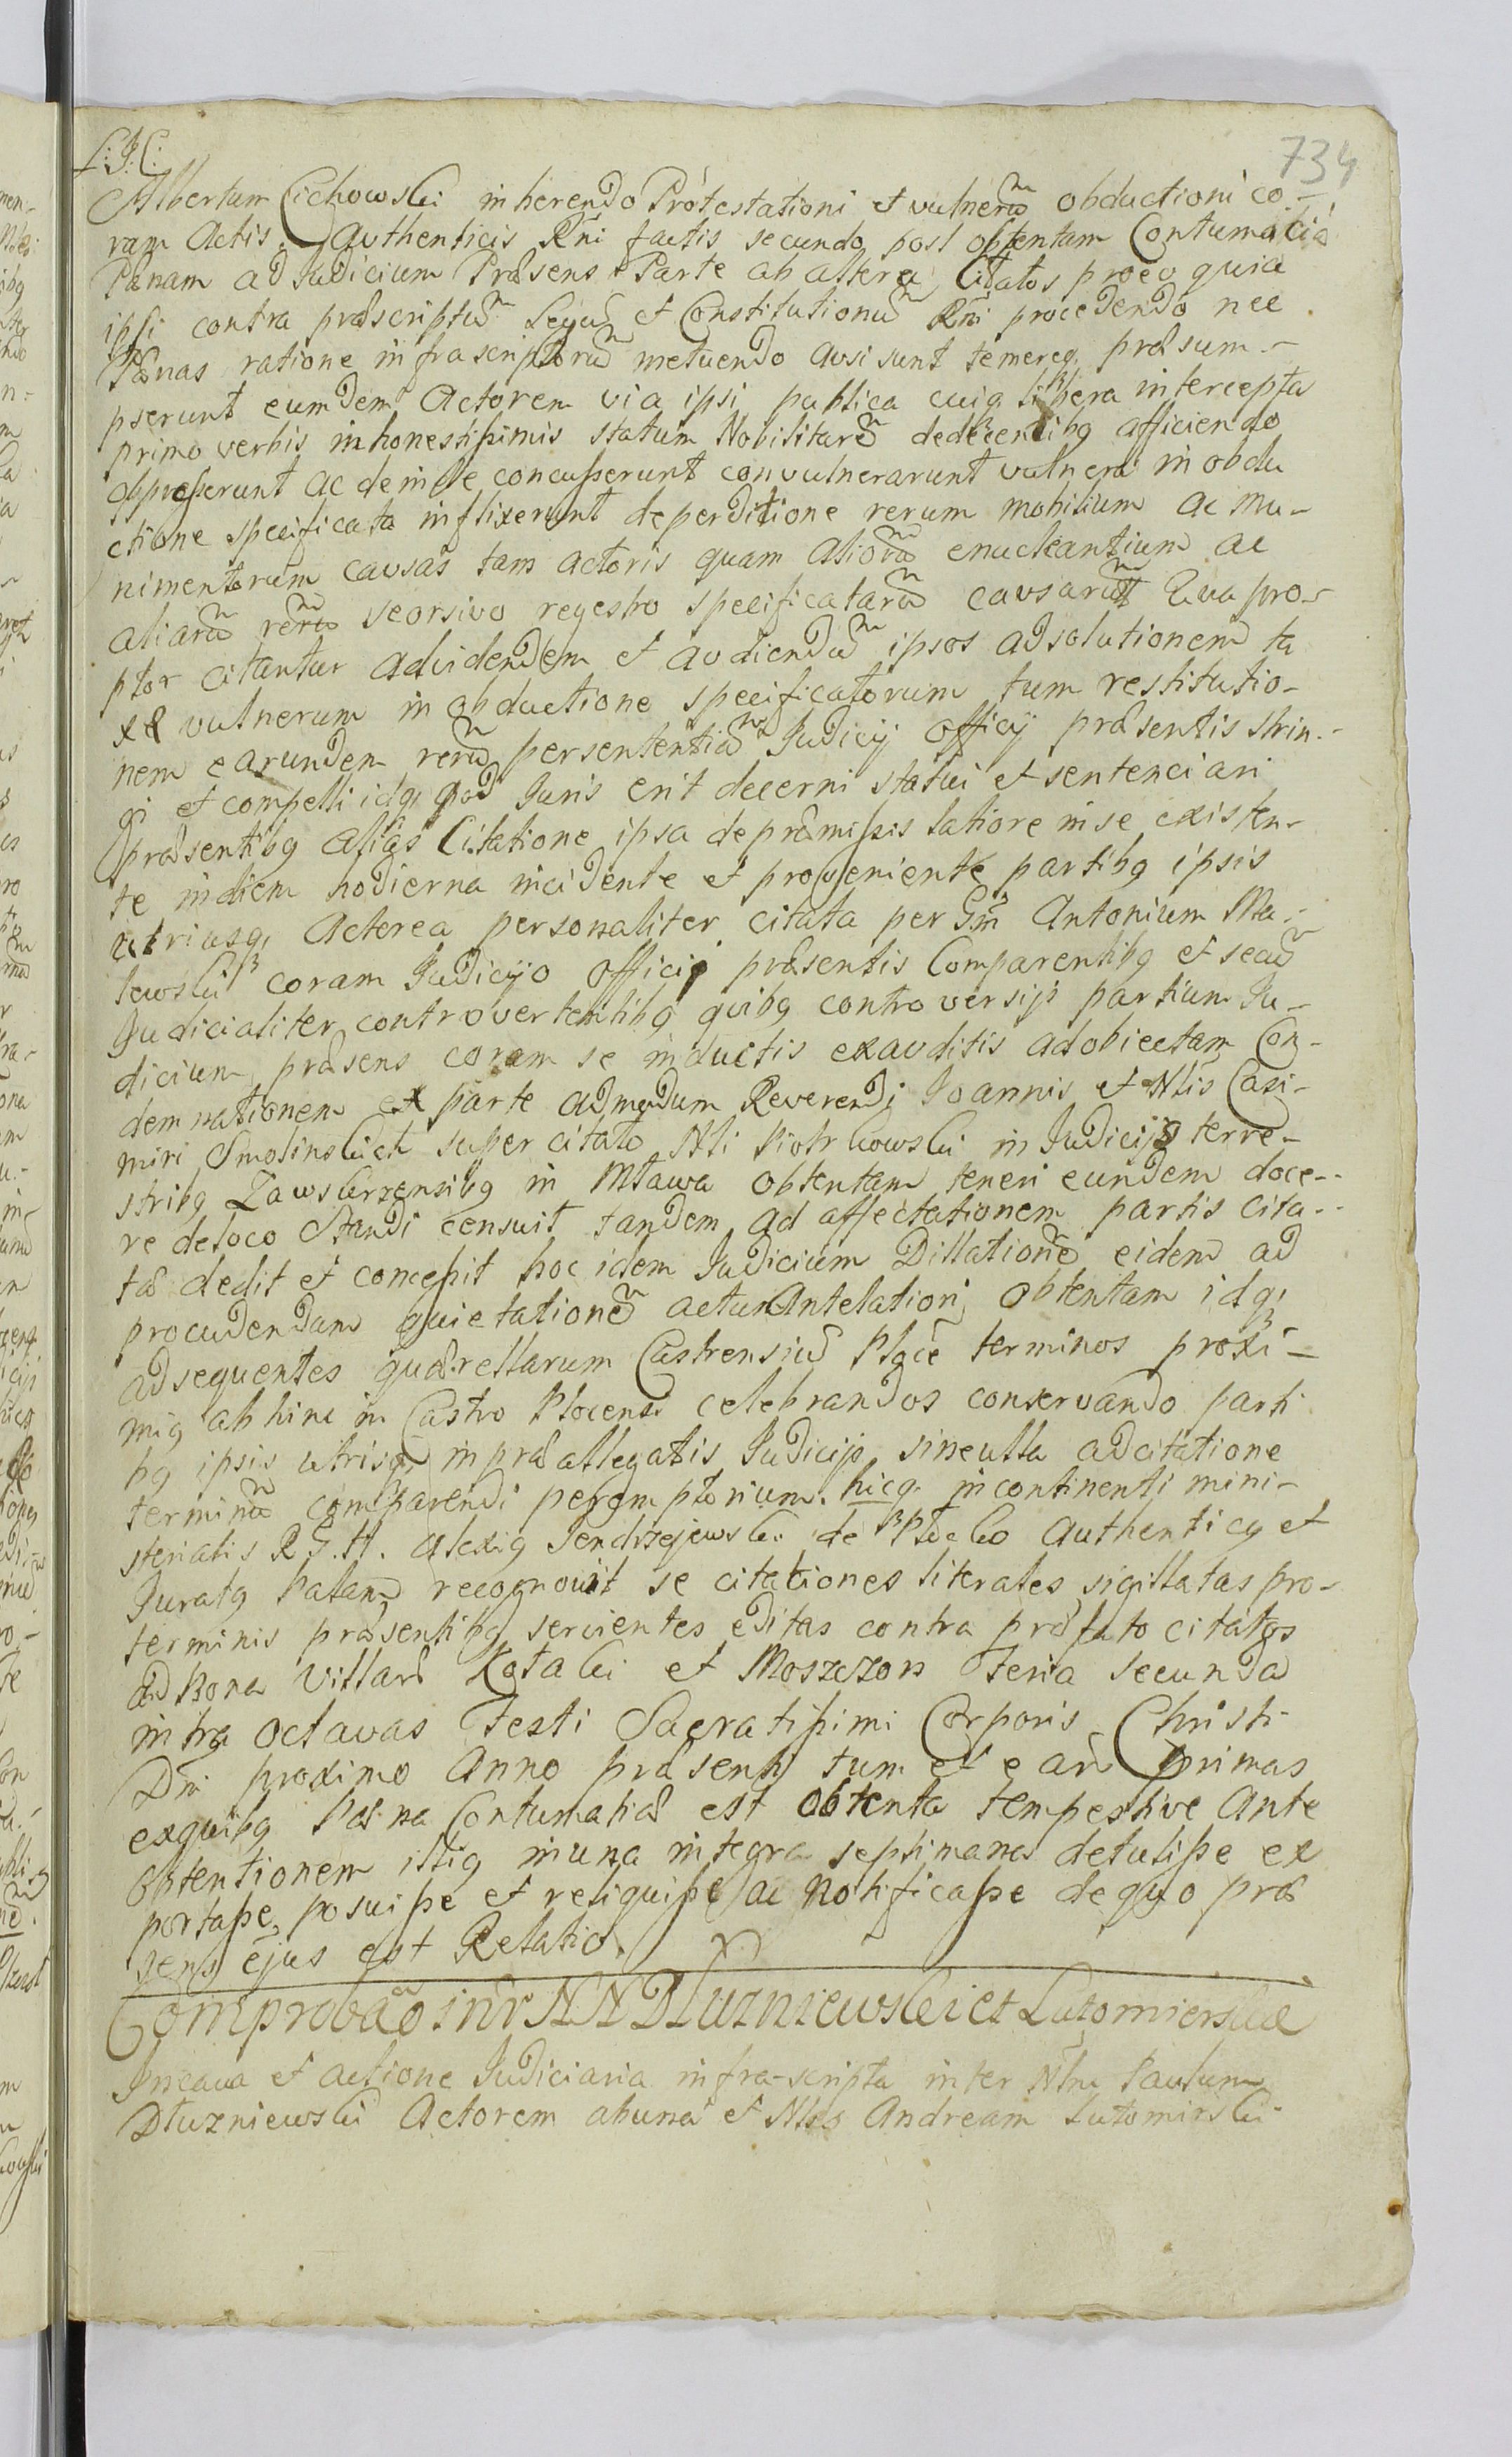 734
L: J: C:
Albertum Cichowski inherendo Protestationi et vulnerũ obductioni co-
ram Actis Authenticis Rñi factis secundo post obtentam Contumaciæ
Pænam ad Judicium Præsens Parte ab altera Citatos proeo quia
ipsi contra præscriptũ Legũ et Constitutionũ Rñi procedendo nec
Pænas ratione infrascriptorũ metuendo ausi sunt temereq præsum-
pserunt eumdem Actorem via ipsi publica cuiq libera intercepta
primo verbis inhonestissimis statum Nobilitarẽ dedecentibq afficiendo
oppresserunt ac deinde concusserunt convulnerarunt vulnera in obdu
ctione specificata inflixerunt deperditione rerum mobilium ac mu-
nimentorum causas tam actoris quam aliorũ enucleantium ac
aliarũ rerũ seorsivo regestro specificatarũ causarunt Qua pro-
pter citantur advidendem et audiendũ ipsos adsolutionem ta
xæ vulnerum in obductione specificatorum tum restitutio-
nem earundem rerũ persententiã Judicij Officij præsentis strin-
gi et compelli idq quod Juris erit decerni statui et sentenciari
præsentibq alias Citatione ipsa depræmissis latiore inse existen-
te indiem hodierna incidente et proveniente partibq ipsis
utriusq Acterea personaliter citata per Gm̃ Antonium Ma-
lewski coram Judicijo Officij præsentis Comparentibq et secũ
Judicialiter controvertentibq quibq controversijs partium Ju-
dicium præsens coram se inductis exauditis adobiectam Con-
demnationem ex parte admodum Reverendi Joannis et Nlis Casi-
miri Smolinskich super citato Nli Piotrkowski in Judicijs terre-
stribq Zawskrzensibq in Mława obtentam teneri eundem doce-
re deloco Standi censuit tandem ad affectationem partis cita-
tæ dedit et concessit hoc idem Judicium Dillationẽ eidem ad
procudendam quietationẽ actur Antelationj obtentam idq
adsequentes quærellarum Castrensiũ Płocẽ terminos proxi-
miq abhinc in Castro Plocensi celebrandos conservando parti
bq ipsis utrisq inpræallegatis Judicijs sineulla adcitatione
terminũ comparendi peremptorium. hicq incontinenti mini-
sterialis R. G. H. Alexiq Jendrzejewski de Płocko Authenticq et
Juratq Palam recognovit se citationes literales sigillatas pro-
terminis præsentibq servientes editas contra præfato citatos
ad Bona Villarũ Kotaki et Moszczon Feria Secunda
intra octavas Festi Sacratissimi Corporis Christi
Dni proximo Anno præsenti tum et earũ primas
exquibq Pæna Contumatiæ est obtenta tempestive Ante
obtentionem istiq inuna integra septimana detulisse ex
portasse, posuisse et reliquisse ac notificasse dequo præ
sens ejus est Relatio.
Comprobaõ intr NN Dłuzniewski et Lutomierskie
Incaua et actione Judiciaria infra-scripta inter Nlm Paulum
Dłuzniewski Actorem abuna et Nlos Andream Lutomirski